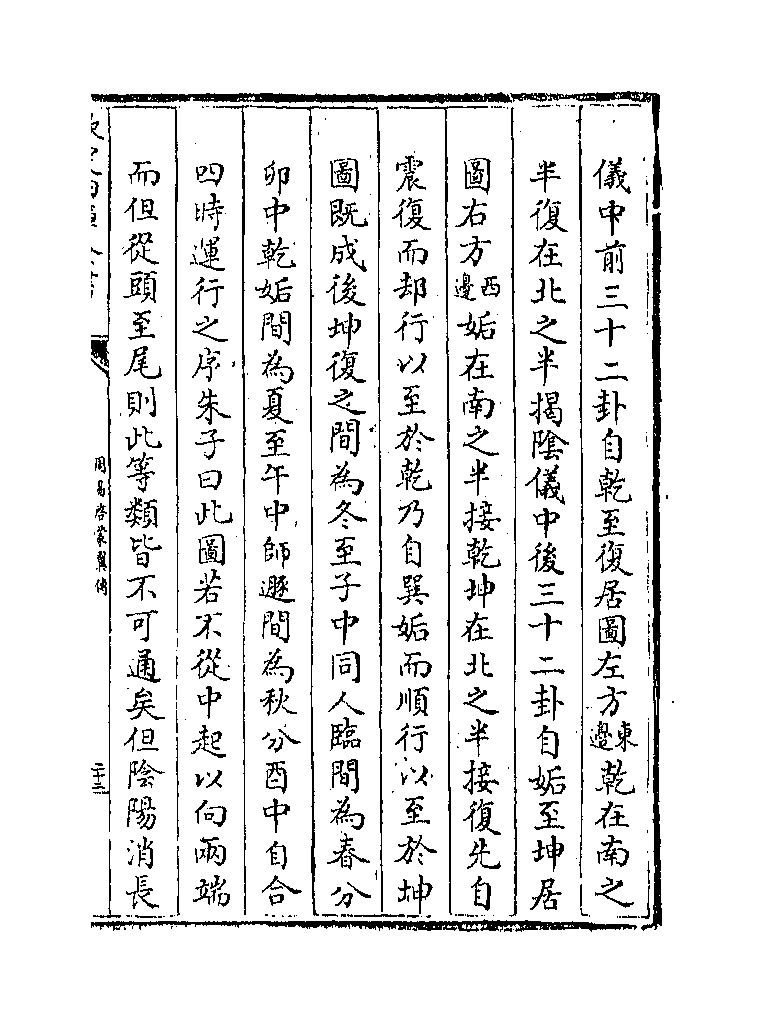 儀中前三十二卦自乾至復居圖左方東邊乾在南之
半復在北之半揭陰儀中後三十二卦自姤至坤居
圖右方西邊姤在南之半接乾坤在北之半接復先自
震復而却行以至於乾乃自巽姤而順行以至於坤
圖既成後坤復之間為冬至子中同人臨間為春分
卯中乾姤間為夏至午中師遯間為秋分酉中自合
四時運行之序朱子曰此圖若不從中起以向兩端
而但從頭至尾則此等類皆不可通矣但陰陽消長
周易啓蒙翼傳
二十三